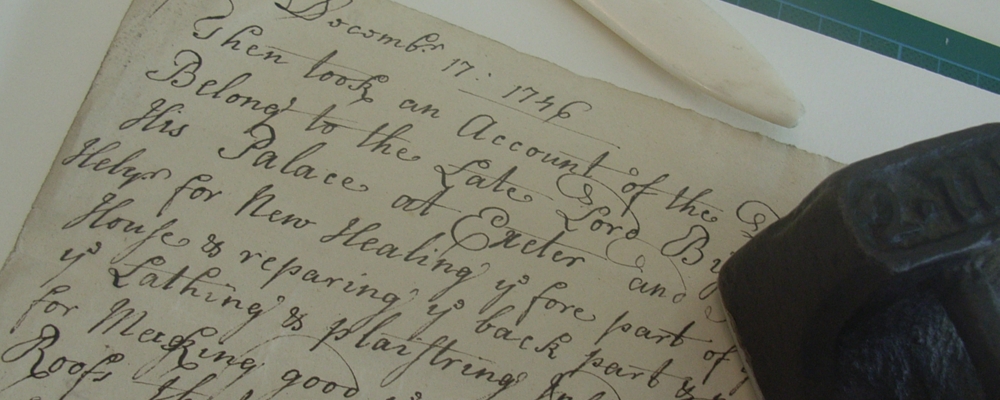 Decembr. 17: 1746
Then took an Account of the
Belong to the Late Lord
His Palace at Exeter and
Helyr for New Healing ye fore part of
House & reparing ye back part &
ye Lathing & plaistring
for Making good
Roofs